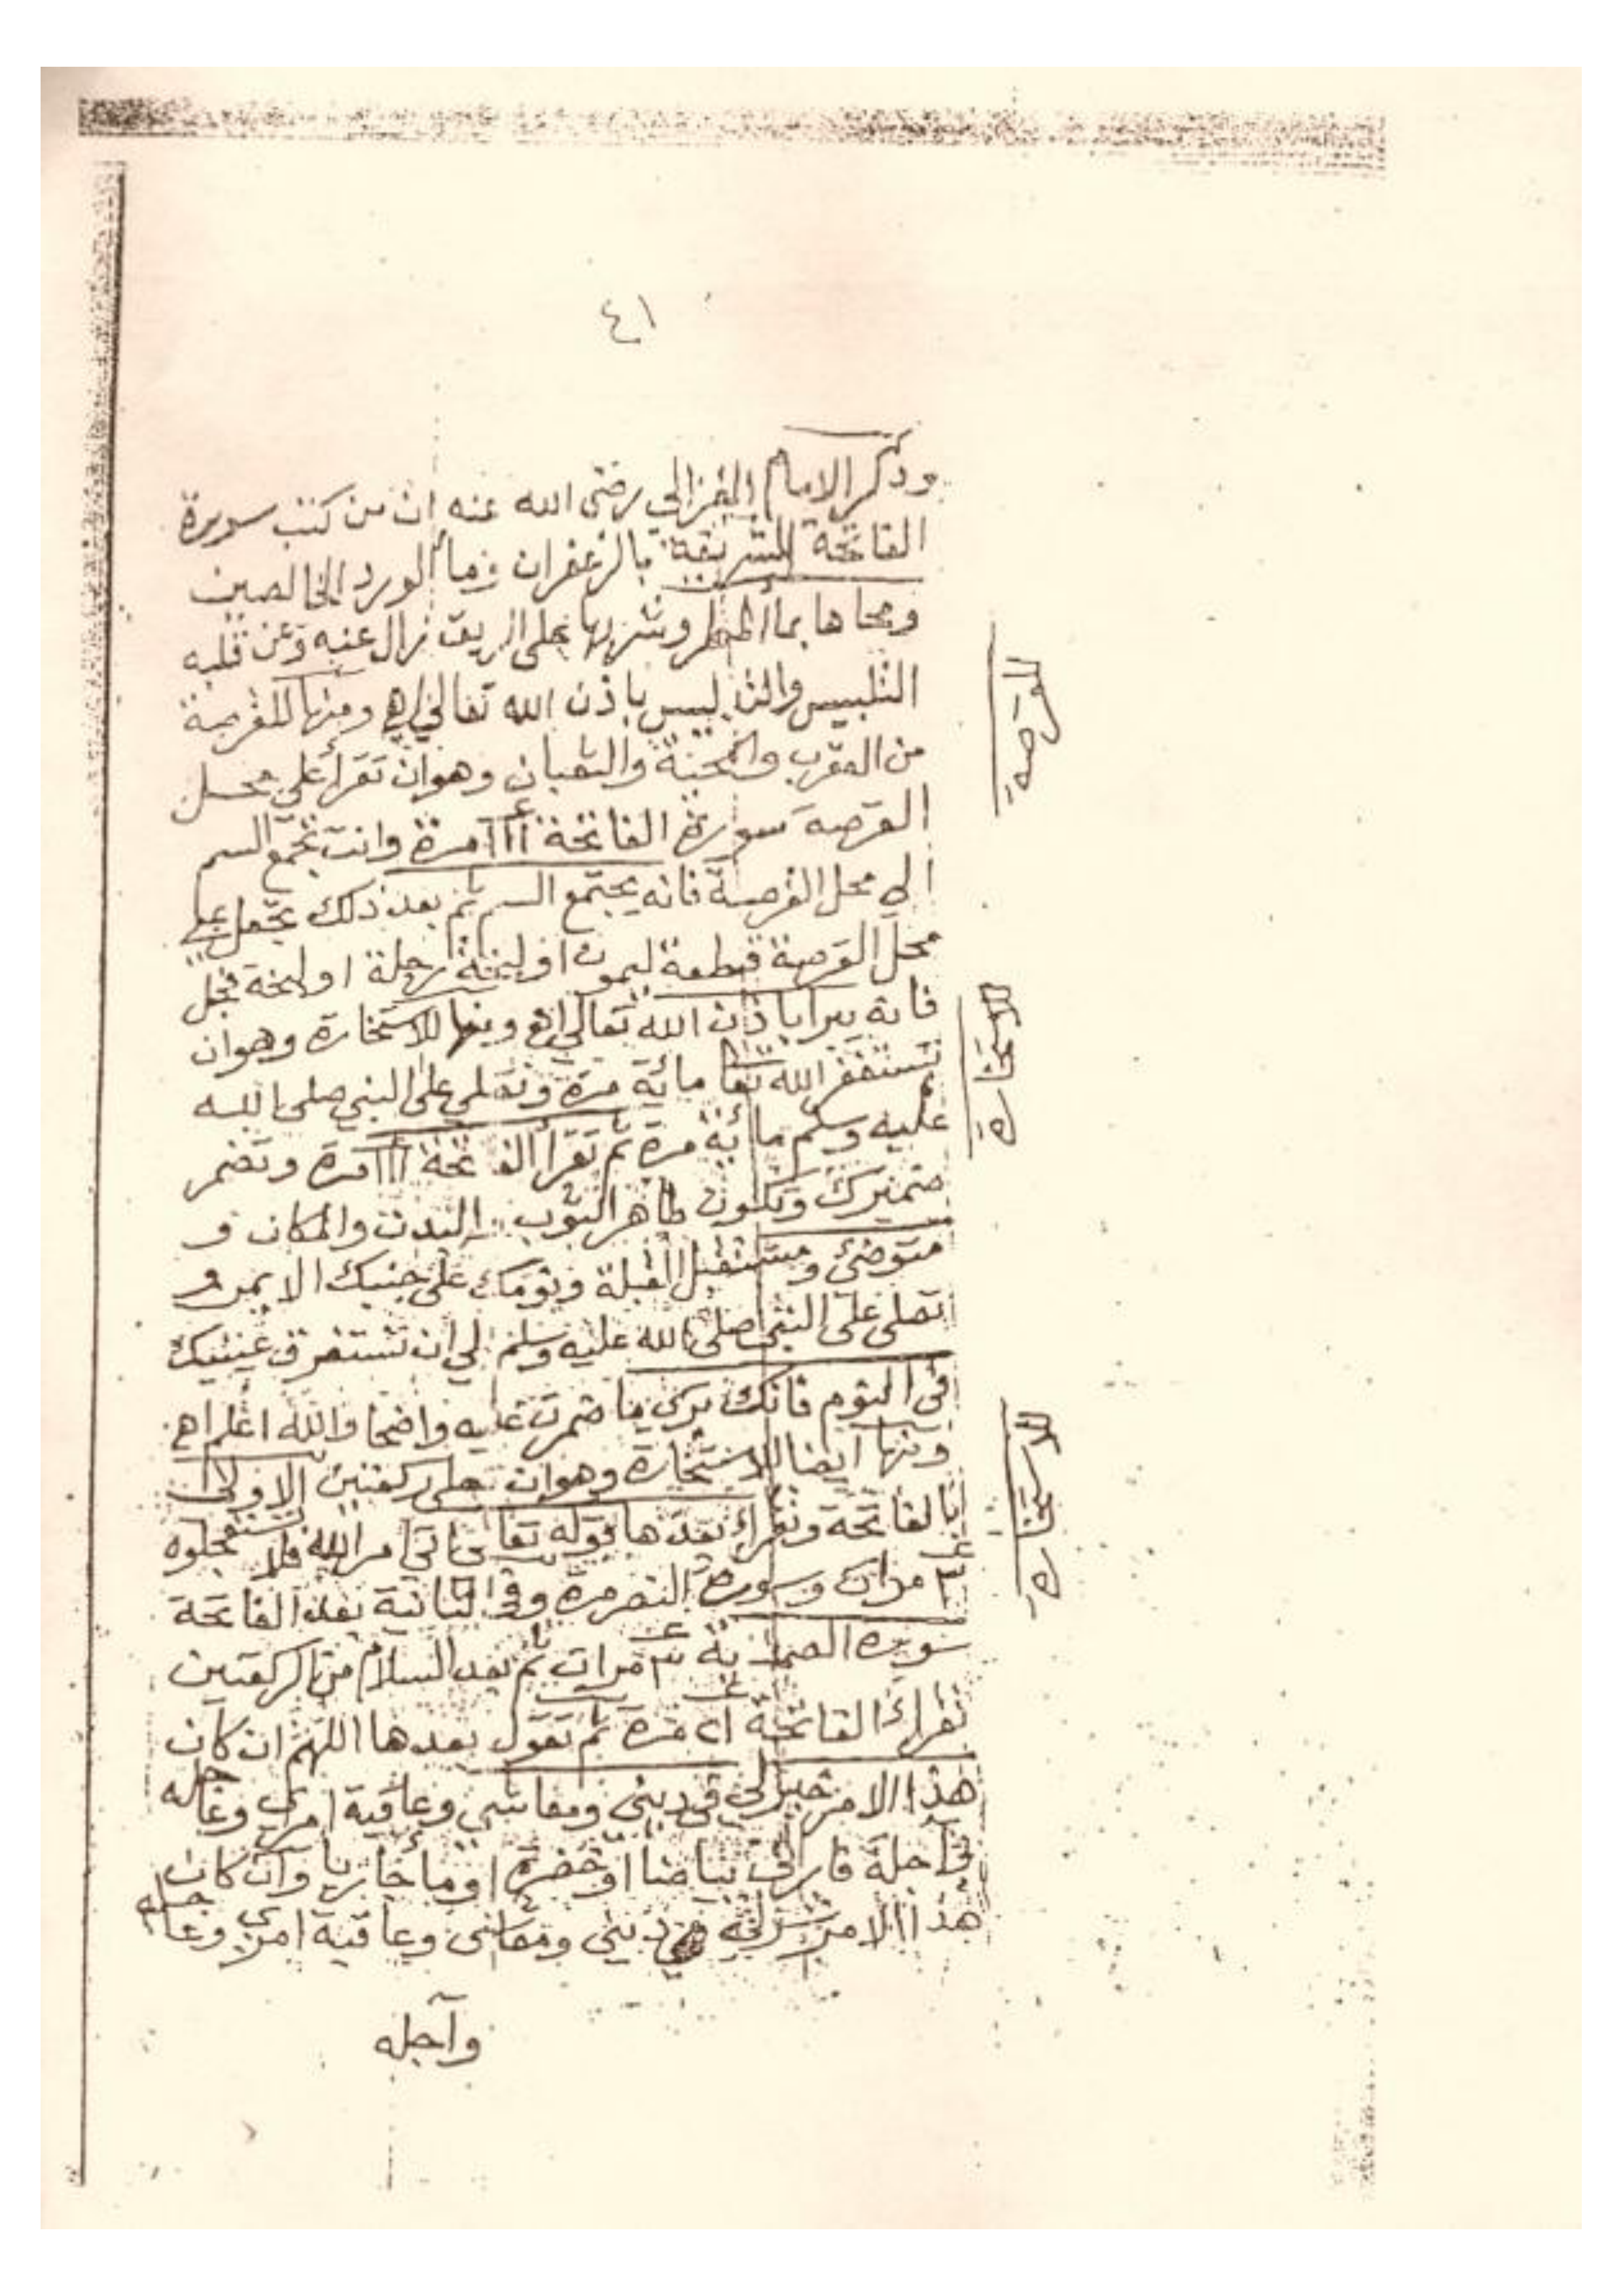 ٤١
وذكر الامام الغزالي رضى الله عنه ان من كتب سورة
الفاتحة الشريفة بالزعفران وماً الورد الخالصين
ومحاها بماً المطر وشربها على الريق زال عنه وعن قلبه
التلبيس باذن الله تعالى اهـ ومنها للقرصة
من العقرب والثعبان وهو ان تقرأ على محل
القرصة سورة الفاتحة ١١١ مرة وانت تجمع السم
الي محل القرصة فانه يجتمع السم ثم بعد ذلك تجعل على
محل القرصة قطعة ليمون او لبخة رجلة او لبخة فجل
فانه يبرا باذن الله تعالى اهـ ومنها للاستخارة وهو ان
تستغفر الله تعا مائة مرة وتصلي على النبي صلى الله
عليه وسلم مائة مرة ثم تقرأ الفاتحة ١١١ مرة وتضمر
ضميرك وتكون طاهر الثوب البدن والمكان و
متوضئ ومستقبل القبلة ونومك على جنبك الايمن و
تصلى على النبى صلى الله عليه وسلم الي ان تستغرق عينيك
في النوم فانك ترى ما ضمرت عليه واضحا والله اعلم اهـ
ومنها ايضا للاستخارة وهو ان تصلى ركعتين الاولى
بالفاتحة وتقراء بعدها قوله تعالى اتي امر الله فلا تستعجلوه
٣ مرات وسورة النصر مرة وفي الثانية بعد الفاتحة
سورة الصمدية ٣ مرات ثم بعد السلام من الركعتين
تقراء الفاتحة ٤١ مرة ثم تقول بعدها اللهم ان كان
هذا الامر خير لي في دينى ومعاشي وعاقبة امري وعاجله
في آجله فارني بياضا او خضرة او ماً جاريا وان كان
هذا الامر شر لي في دينى ومعاشى وعاقبة امري وعاجله
وآجله
للقرصة
للاستخارة
للاستخارة